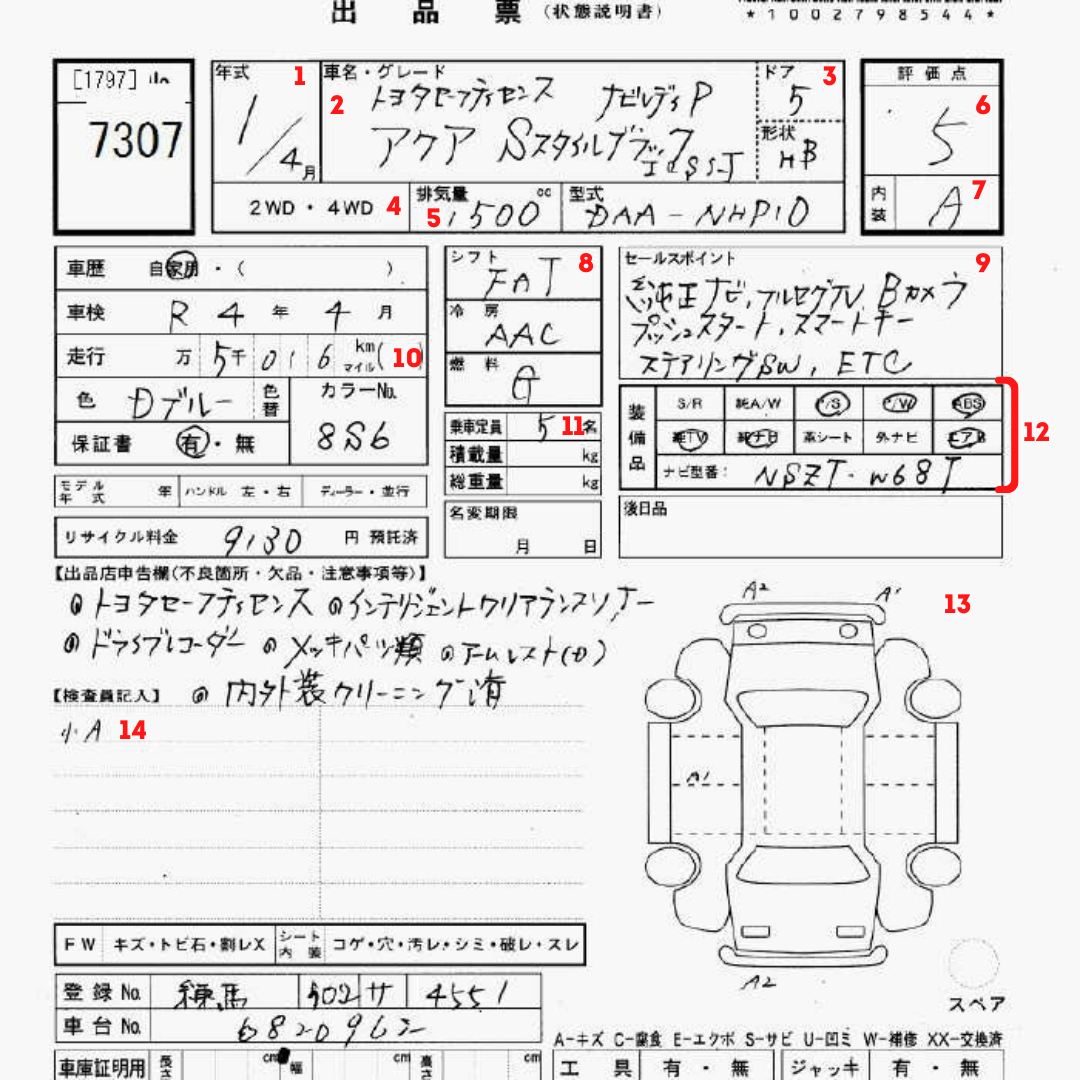 出 品 票 (状態説明書)
*1002798544*
[1797]
7307
年式 1
1/4月
車名・グレード
2 トヨタセーフティセンス ナビレディP
アクア Sスタイルブラック
ドア 3
5
形状
HB
評価点
6
5
内装 7
A
2WD・4WD 4
排気量 cc
5 1500
型式
DAA-NHP10
車歴 自家用・( )
車検 R 4 年 4 月
走行 万 5千 0 1 6 km マイル( 10
色 Dブルー 色替
カラーNo.
8S6
保証書 有・無
モデル年式 年 ハンドル 左・右 ディーラー・並行
リサイクル料金 9130 円 預託済
シフト 8
FAT
冷房
AAC
燃料
G
乗車定員 5 11 名
積載量 kg
総重量 kg
名変期限
月 日
セールスポイント 9
純正ナビ,フルセグTV,Bカメラ
プッシュスタート,スマートキー
ステアリングSW, ETC
装備品
S/R 純A/W P/S P/W ABS
純TV 純ナビ 革シート 外ナビ エアB
12
ナビ型番: NSZT-W68T
後日品
【出品店申告欄(不良箇所・欠品・注意事項等)】
@トヨタセーフティセンス @インテリジェントクリアランスソナー
@ドライブレコーダー @メッキパーツ類 @アームレスト(の)
【検査員記入】 @内外装クリーニング済
小A 14
A2 A1
13
A1
A2
スペア
FW キズ・トビ石・割レX シート内装 コゲ・穴・汚レ・シミ・破レ・スレ
登録No. 練馬 502 サ 4551
車台No. 6820962
A-キズ C-腐食 E-エクボ S-サビ U-凹ミ W-補修 XX-交換済
車庫証明用 長さ cm 幅 cm 高さ cm
工具 有・無 ジャッキ 有・無